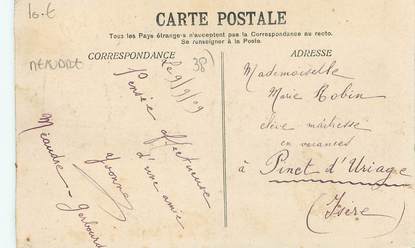 10.€
CARTE POSTALE
Tous les Pays étrangers n'acceptent pas la Correspondance au recto.
Se renseigner à la Poste.
CORRESPONDANCE
ADRESSE
MEAUDRE
38
Le 9/9/09
Pensée affectueuse
d'une amie
Yvonne
Méaudre -
Mademoiselle
Marie Robin
élève maîtresse
en vacances
à Pinet d'Uriage
(Isère)